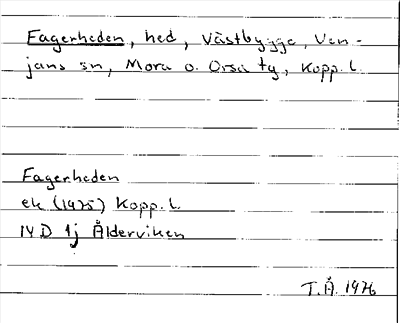 Fagerheden, hed, Västbygge, Ven-
jans sn, Mora o. Orsa tg, Kopp. l.
Fagerheden
ek (1975) Kopp. l.
14 D 1j Ålderviken
T.Å. 1976